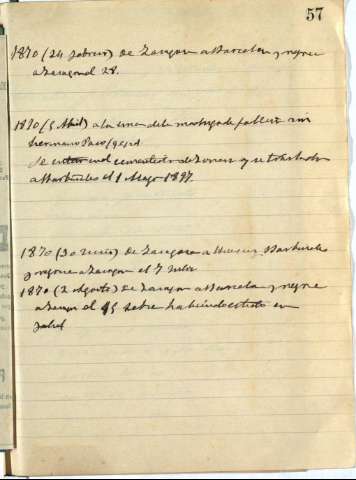 57
1870 (24 febrero) de Zaragoza a Barcelona y regresé
a Zaragoza el 28.
1870 (5 Abril) a la una de la madrugada falleció mi
hermano Paco
Se enterró en el cementerio de Zaragoza y se trasladó
a Barbués el 1 Mayo 1897.
1870 (30 Junio) de Zaragoza a Huesca, Barbués
y regresé a Zaragoza el 7 Julio
1870 (2 Agosto) de Zaragoza a Barcelona y regresé
a Zaragoza el 15 Sebre habiendo estado en